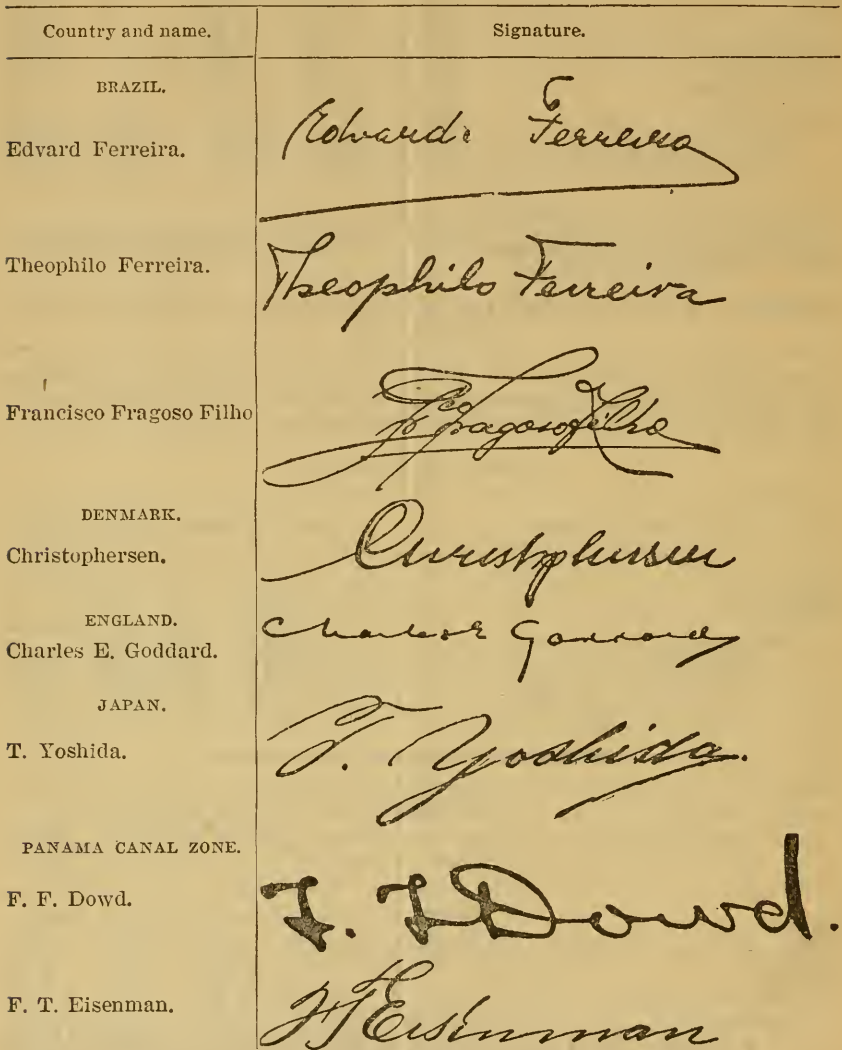 Country and name. Signature.
BRAZIL.
Edvard Ferreira. Edvard Ferreira
Theophilo Ferreira. Theophilo Ferreira
Francisco Fragoso Filho Fr Fragoso Filho
DENMARK.
Christophersen. Christophersen
ENGLAND.
Charles E. Goddard. Charles E Goddard
JAPAN.
T. Yoshida. T. Yoshida.
PANAMA CANAL ZONE.
F. F. Dowd. F. F Dowd.
F. T. Eisenman. F T Eisenman